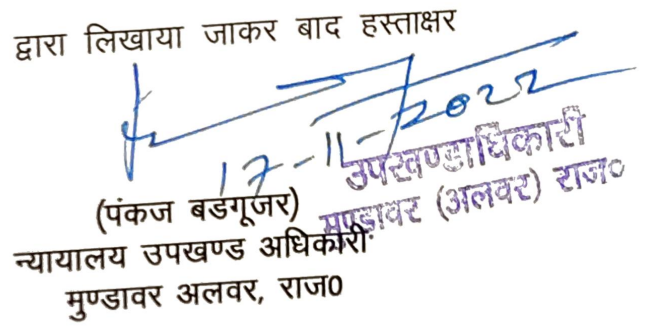 द्वारा लिखाया जाकर बाद हस्ताक्षर
17-11-2022
उपखण्डाधिकारी
मुण्डावर (अलवर) राज०
(पंकज बडगूजर)
न्यायालय उपखण्ड अधिकारी
मुण्डावर अलवर, राज0